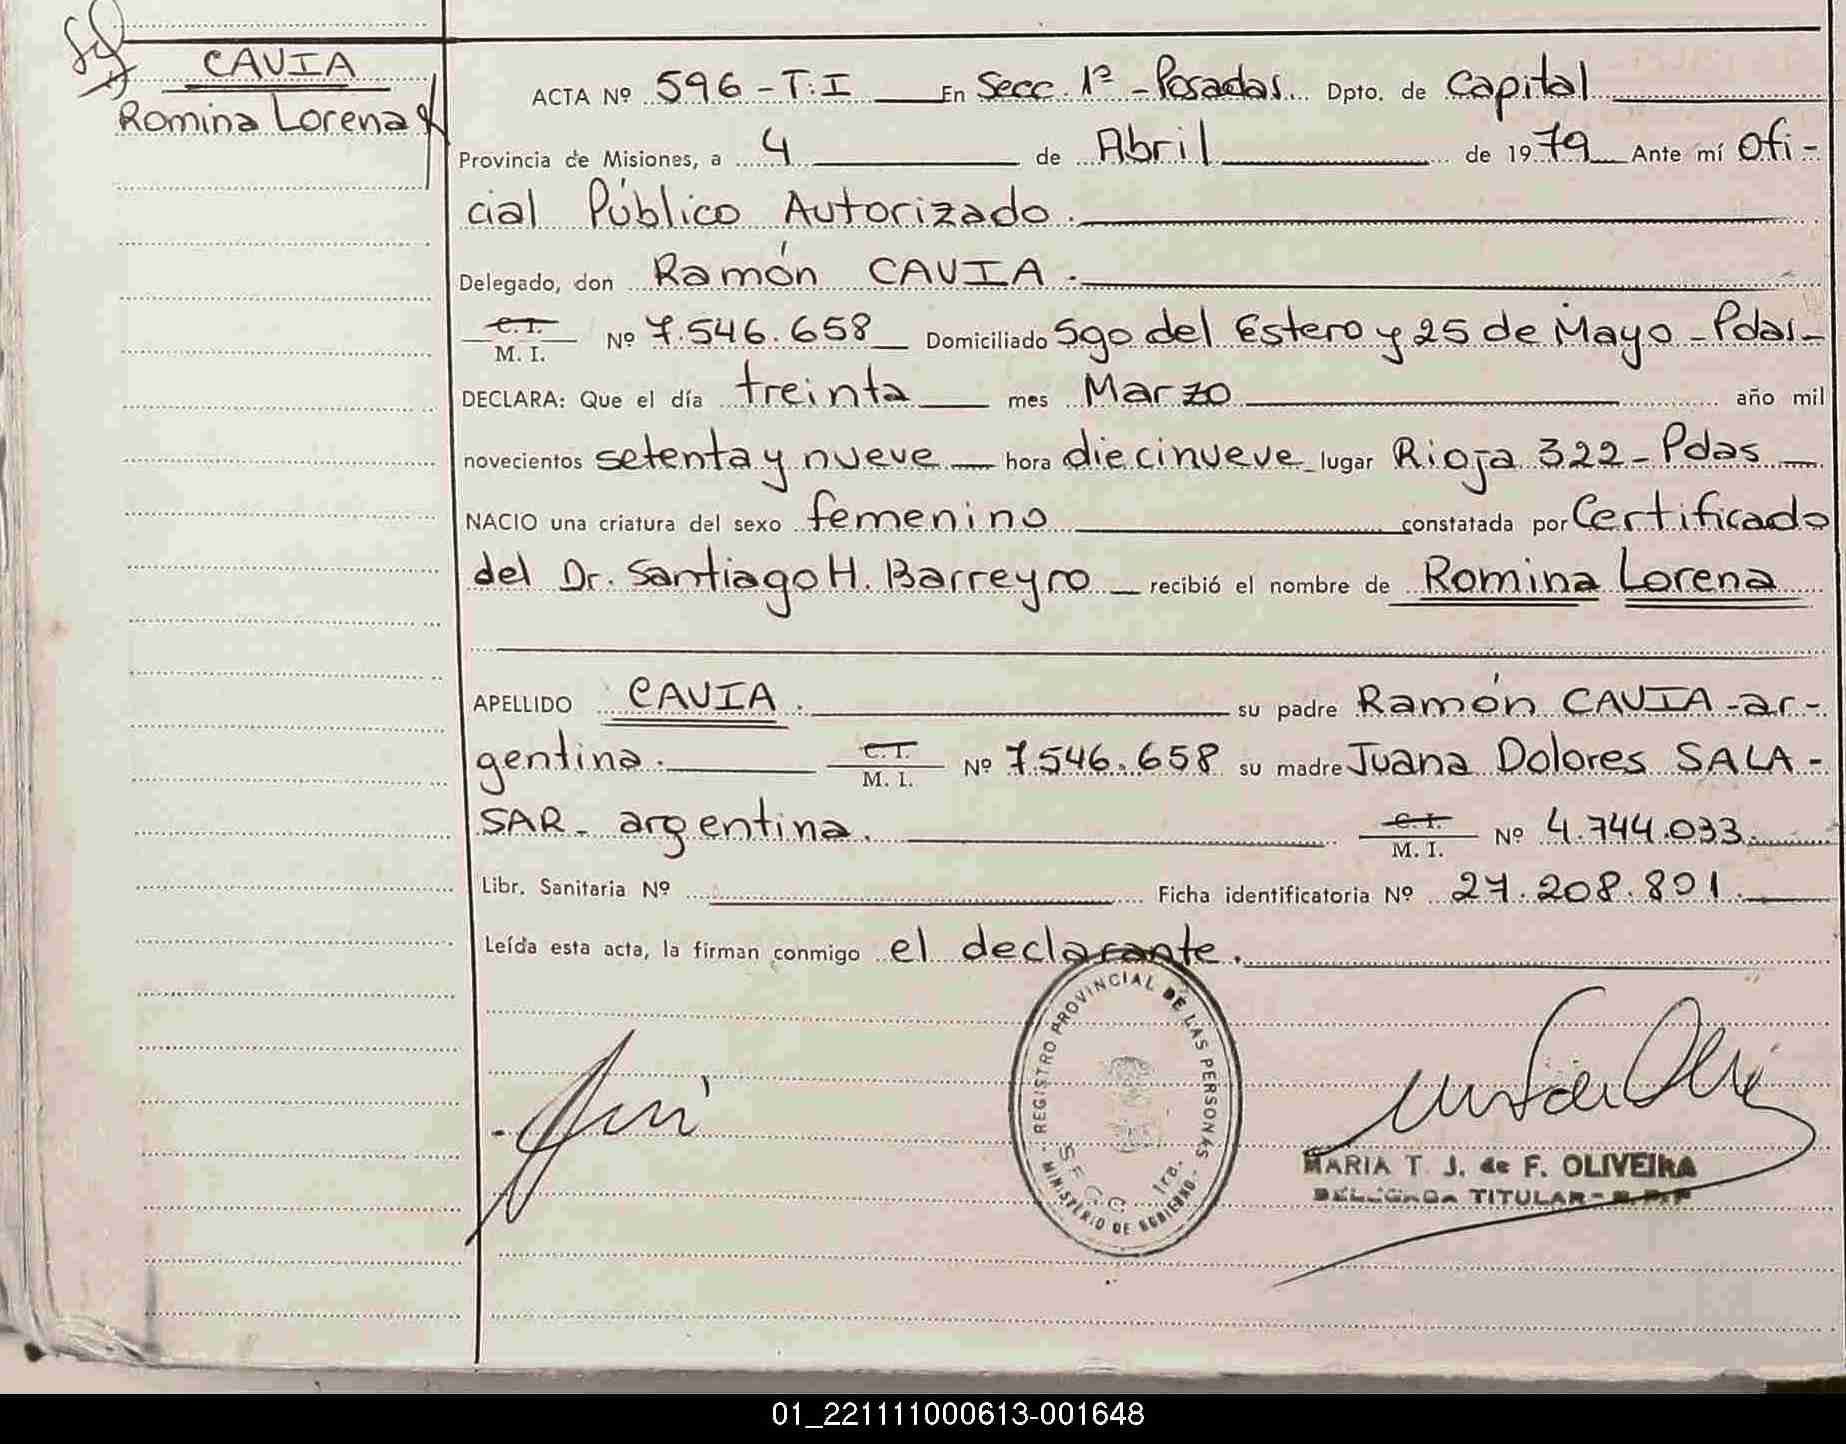 CAVIA
Romina Lorena
ACTA Nº 596 - T.I En Secc. 1ª - Posadas. Dpto. de Capital
Provincia de Misiones, a 4 de Abril de 1979 Ante mí Ofi-
cial Público Autorizado.
Delegado, don Ramón CAVIA.
C.I. M. I. Nº 7.546.658 Domiciliado Sgo del Estero y 25 de Mayo - Pdas-
DECLARA: Que el día treinta mes Marzo año mil
novecientos setenta y nueve hora diecinueve lugar Rioja 322 - Pdas
NACIO una criatura del sexo femenino constatada por Certificado
del Dr. Santiago H. Barreyro recibió el nombre de Romina Lorena
APELLIDO CAVIA. su padre Ramón CAVIA - ar-
gentina. C.I. M. I. Nº 7.546.658 su madre Juana Dolores SALA-
SAR - argentina. C.I. M. I. Nº 4.744.033.
Libr. Sanitaria Nº Ficha identificatoria Nº 27.208.801.
Leída esta acta, la firman conmigo el declarante.
REGISTRO PROVINCIAL DE LAS PERSONAS
SECC. 1ra.
MINISTERIO DE GOBIERNO
MARIA T. J. de F. OLIVEIRA
DELEGADA TITULAR
01_221111000613-001648